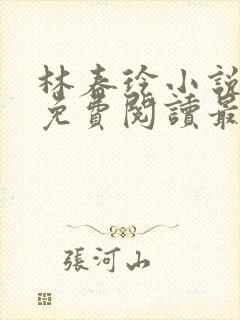 林春玲小說
免費閱讀最
張河山